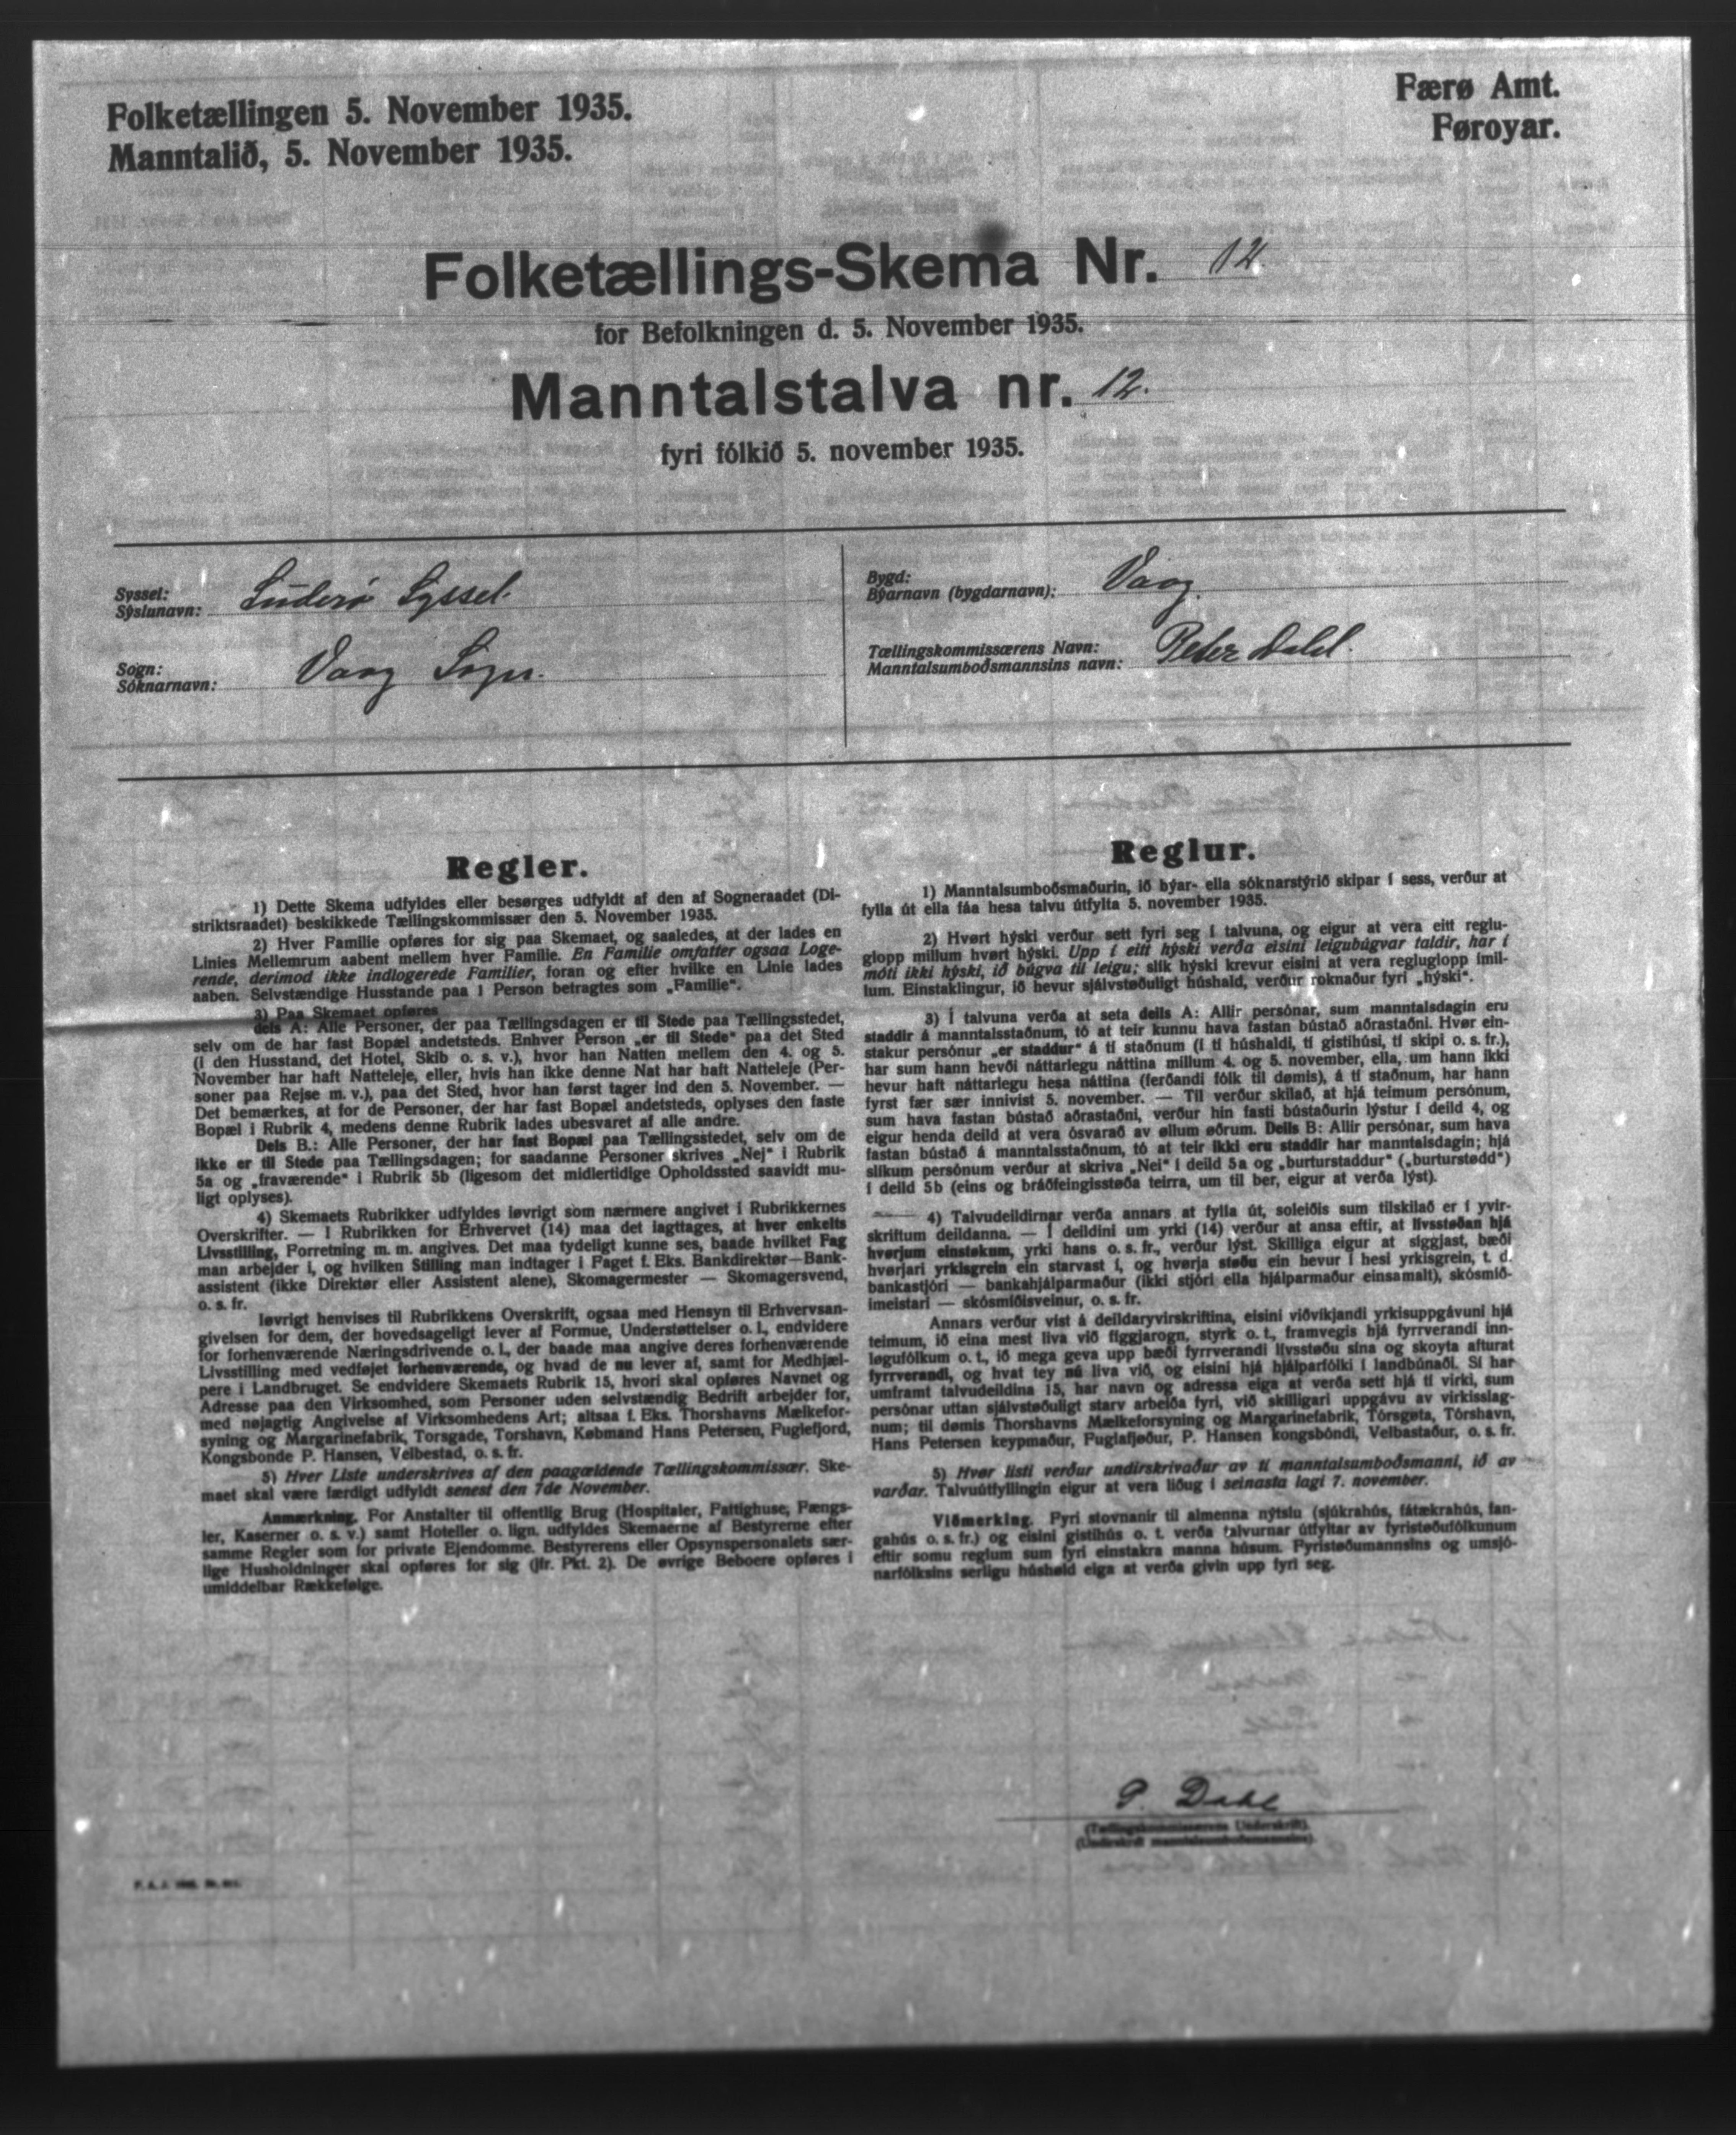 Folketællingen 5. November 1935.
Manntalið, 5. November 1935.
Færø Amt.
Føroyar.
Folketællings-Skema Nr. 12.
for Befolkningen d. 5. November 1935.
Manntalstalva nr. 12.
fyri fólkið 5. november 1935.
Syssel:
Sýslunavn: Suderø Syssel.
Sogn:
Sóknarnavn: Vaag Sogn.
Bygd:
Býarnavn (bygdarnavn): Vaag.
Tællingskommissærens Navn:
Manntalsumboðsmannsins navn: Peter Dahl.
Regler.
1) Dette Skema udfyldes eller besørges udfyldt af den af Sogneraadet (Di-
striktsraadet) beskikkede Tællingskommissær den 5. November 1935.
2) Hver Familie opføres for sig paa Skemaet, og saaledes, at der lades en
Linies Mellemrum aabent mellem hver Familie. En Familie omfatter ogsaa Loge-
rende, derimod ikke indlogerede Familier, foran og efter hvilke en Linie lades
aaben. Selvstændige Husstande paa 1 Person betragtes som „Familie“.
3) Paa Skemaet opføres
dels A: Alle Personer, der paa Tællingsdagen er til Stede paa Tællingsstedet,
selv om de har fast Bopæl andetsteds. Enhver Person „er til Stede“ paa det Sted
(i den Husstand, det Hotel, Skib o. s. v.), hvor han Natten mellem den 4. og 5.
November har haft Natteleje, eller, hvis han ikke denne Nat har haft Natteleje (Per-
soner paa Rejse m. v.), paa det Sted, hvor han først tager ind den 5. November. —
Det bemærkes, at for de Personer, der har fast Bopæl andetsteds, oplyses den faste
Bopæl i Rubrik 4, medens denne Rubrik lades ubesvaret af alle andre.
Dels B.: Alle Personer, der har fast Bopæl paa Tællingsstedet, selv om de
ikke er til Stede paa Tællingsdagen; for saadanne Personer skrives „Nej“ i Rubrik
5a og „fraværende“ i Rubrik 5b (ligesom det midlertidige Opholdssted saavidt mu-
ligt oplyses).
4) Skemaets Rubrikker udfyldes iøvrigt som nærmere angivet i Rubrikkernes
Overskrifter. — I Rubrikken for Erhvervet (14) maa det iagttages, at hver enkelts
Livsstilling, Forretning m. m. angives. Det maa tydeligt kunne ses, baade hvilket Fag
man arbejder i, og hvilken Stilling man indtager i Faget f. Eks. Bankdirektør—Bank-
assistent (ikke Direktør eller Assistent alene), Skomagermester — Skomagersvend,
o. s. fr.
Iøvrigt henvises til Rubrikkens Overskrift, ogsaa med Hensyn til Erhvervsan-
givelsen for dem, der hovedsageligt lever af Formue, Understøttelser o. l., endvidere
for forhenværende Næringsdrivende o. l., der baade maa angive deres forhenværende
Livsstilling med vedføjet forhenværende, og hvad de nu lever af, samt for Medhjæl-
pere i Landbruget. Se endvidere Skemaets Rubrik 15, hvori skal opføres Navnet og
Adresse paa den Virksomhed, som Personer uden selvstændig Bedrift arbejder for,
med nøjagtig Angivelse af Virksomhedens Art; altsaa f. Eks. Thorshavns Mælkefor-
syning og Margarinefabrik, Torsgade, Torshavn, Købmand Hans Petersen, Fuglefjord,
Kongsbonde P. Hansen, Velbestad, o. s. fr.
5) Hver Liste underskrives af den paagældende Tællingskommissær. Ske-
maet skal være færdigt udfyldt senest den 7de November.
Anmærkning. For Anstalter til offentlig Brug (Hospitaler, Fattighuse, Fængs-
ler, Kaserner o. s. v.) samt Hoteller o. lign. udfyldes Skemaerne af Bestyrerne efter
samme Regler som for private Ejendomme. Bestyrerens eller Opsynspersonalets sær-
lige Husholdninger skal opføres for sig (jfr. Pkt. 2). De øvrige Beboere opføres i
umiddelbar Rækkefølge.
Reglur.
1) Manntalsumboðsmaðurin, ið býar- ella sóknarstýrið skipar í sess, verður at
fylla út ella fáa hesa talvu útfylta 5. november 1935.
2) Hvørt hýski verður sett fyri seg í talvuna, og eigur at vera eitt reglu-
glopp millum hvørt hýski. Upp í eitt hýski verða eisini leigubúgvar taldir, har í
móti ikki hýski, ið búgva til leigu; slík hýski krevur eisini at vera regluglopp ímil-
lum. Einstaklingur, ið hevur sjálvstøðuligt húshald, verður roknaður fyri „hýski“.
3) Í talvuna verða at seta deils A: Allir persónar, sum manntalsdagin eru
staddir á manntalsstaðnum, tó at teir kunnu hava fastan bústað aðrastaðni. Hvør ein-
stakur persónur „er staddur“ á tí staðnum (í tí húshaldi, tí gistihúsi, tí skipi o. s. fr.),
har sum hann hevði náttarlegu náttina millum 4. og 5. november, ella, um hann ikki
hevur haft náttarlegu hesa náttina (ferðandi fólk til dømis), á tí staðnum, har hann
fyrst fær sær innivist 5. november. — Til verður skilað, at hjá teimum persónum,
sum hava fastan bústað aðrastaðni, verður hin fasti bústaðurin lýstur í deild 4, og
eigur henda deild at vera ósvarað av øllum øðrum. Deils B: Allir persónar, sum hava
fastan bústað á manntalsstaðnum, tó at teir ikki eru staddir har manntalsdagin; hjá
slíkum persónum verður at skriva „Nei“ í deild 5a og „burturstaddur“ („burturstødd“)
í deild 5b (eins og bráðfeingisstøða teirra, um til ber, eigur at verða lýst).
4) Talvudeildirnar verða annars at fylla út, soleiðis sum tilskilað er í yvir-
skriftum deildanna. — Í deildini um yrki (14) verður at ansa eftir, at lívsstøðan hjá
hvørjum einstøkum, yrki hans o. s. fr., verður lýst. Skilliga eigur at siggjast, bæði
hvørjari yrkisgrein ein starvast í, og hvørja støðu ein hevur í hesi yrkisgrein, t. d.
bankastjóri — bankahjálparmaður (ikki stjóri ella hjálparmaður einsamalt), skósmið-
imeistari — skósmiðisveinur, o. s. fr.
Annars verður víst á deildaryvirskriftina, eisini viðvíkjandi yrkisuppgávuni hjá
teimum, ið eina mest liva við figgjarogn, styrk o. t., framvegis hjá fyrrverandi inn-
løgufólkum o. t., ið mega geva upp bæði fyrrverandi lívsstøðu sína og skoyta afturat
fyrrverandi, og hvat tey nú liva við, og eisini hjá hjálparfólki í landbúnaði. Sí har
umframt talvudeildina 15, har navn og adressa eiga at verða sett hjá tí virki, sum
persónar uttan sjálvstøðuligt starv arbeiða fyri, við skilligari uppgávu av virkisslag-
num; til dømis Thorshavns Mælkeforsyning og Margarinefabrik, Tórsgøta, Tórshavn,
Hans Petersen keypmaður, Fuglafjøður, P. Hansen kongsbóndi, Velbastaður, o. s. fr.
5) Hvør listi verður undirskrivaður av tí manntalsumboðsmanni, ið av
varðar. Talvuútfyllingin eigur at vera liðug í seinasta lagi 7. november.
Viðmerking. Fyri stovnanir til almenna nýtslu (sjúkrahús, fátækrahús, fan-
gahús o. s. fr.) og eisini gistihús o. t. verða talvurnar útfyltar av fyristøðufólkunum
eftir somu reglum sum fyri einstakra manna húsum. Fyristøðumannsins og umsjó-
narfólksins serligu húshøld eiga at verða givin upp fyri seg.
P. Dahl
(Tællingskommissærens Underskrift).
(Undirskrift manntalsumboðsmannsins).